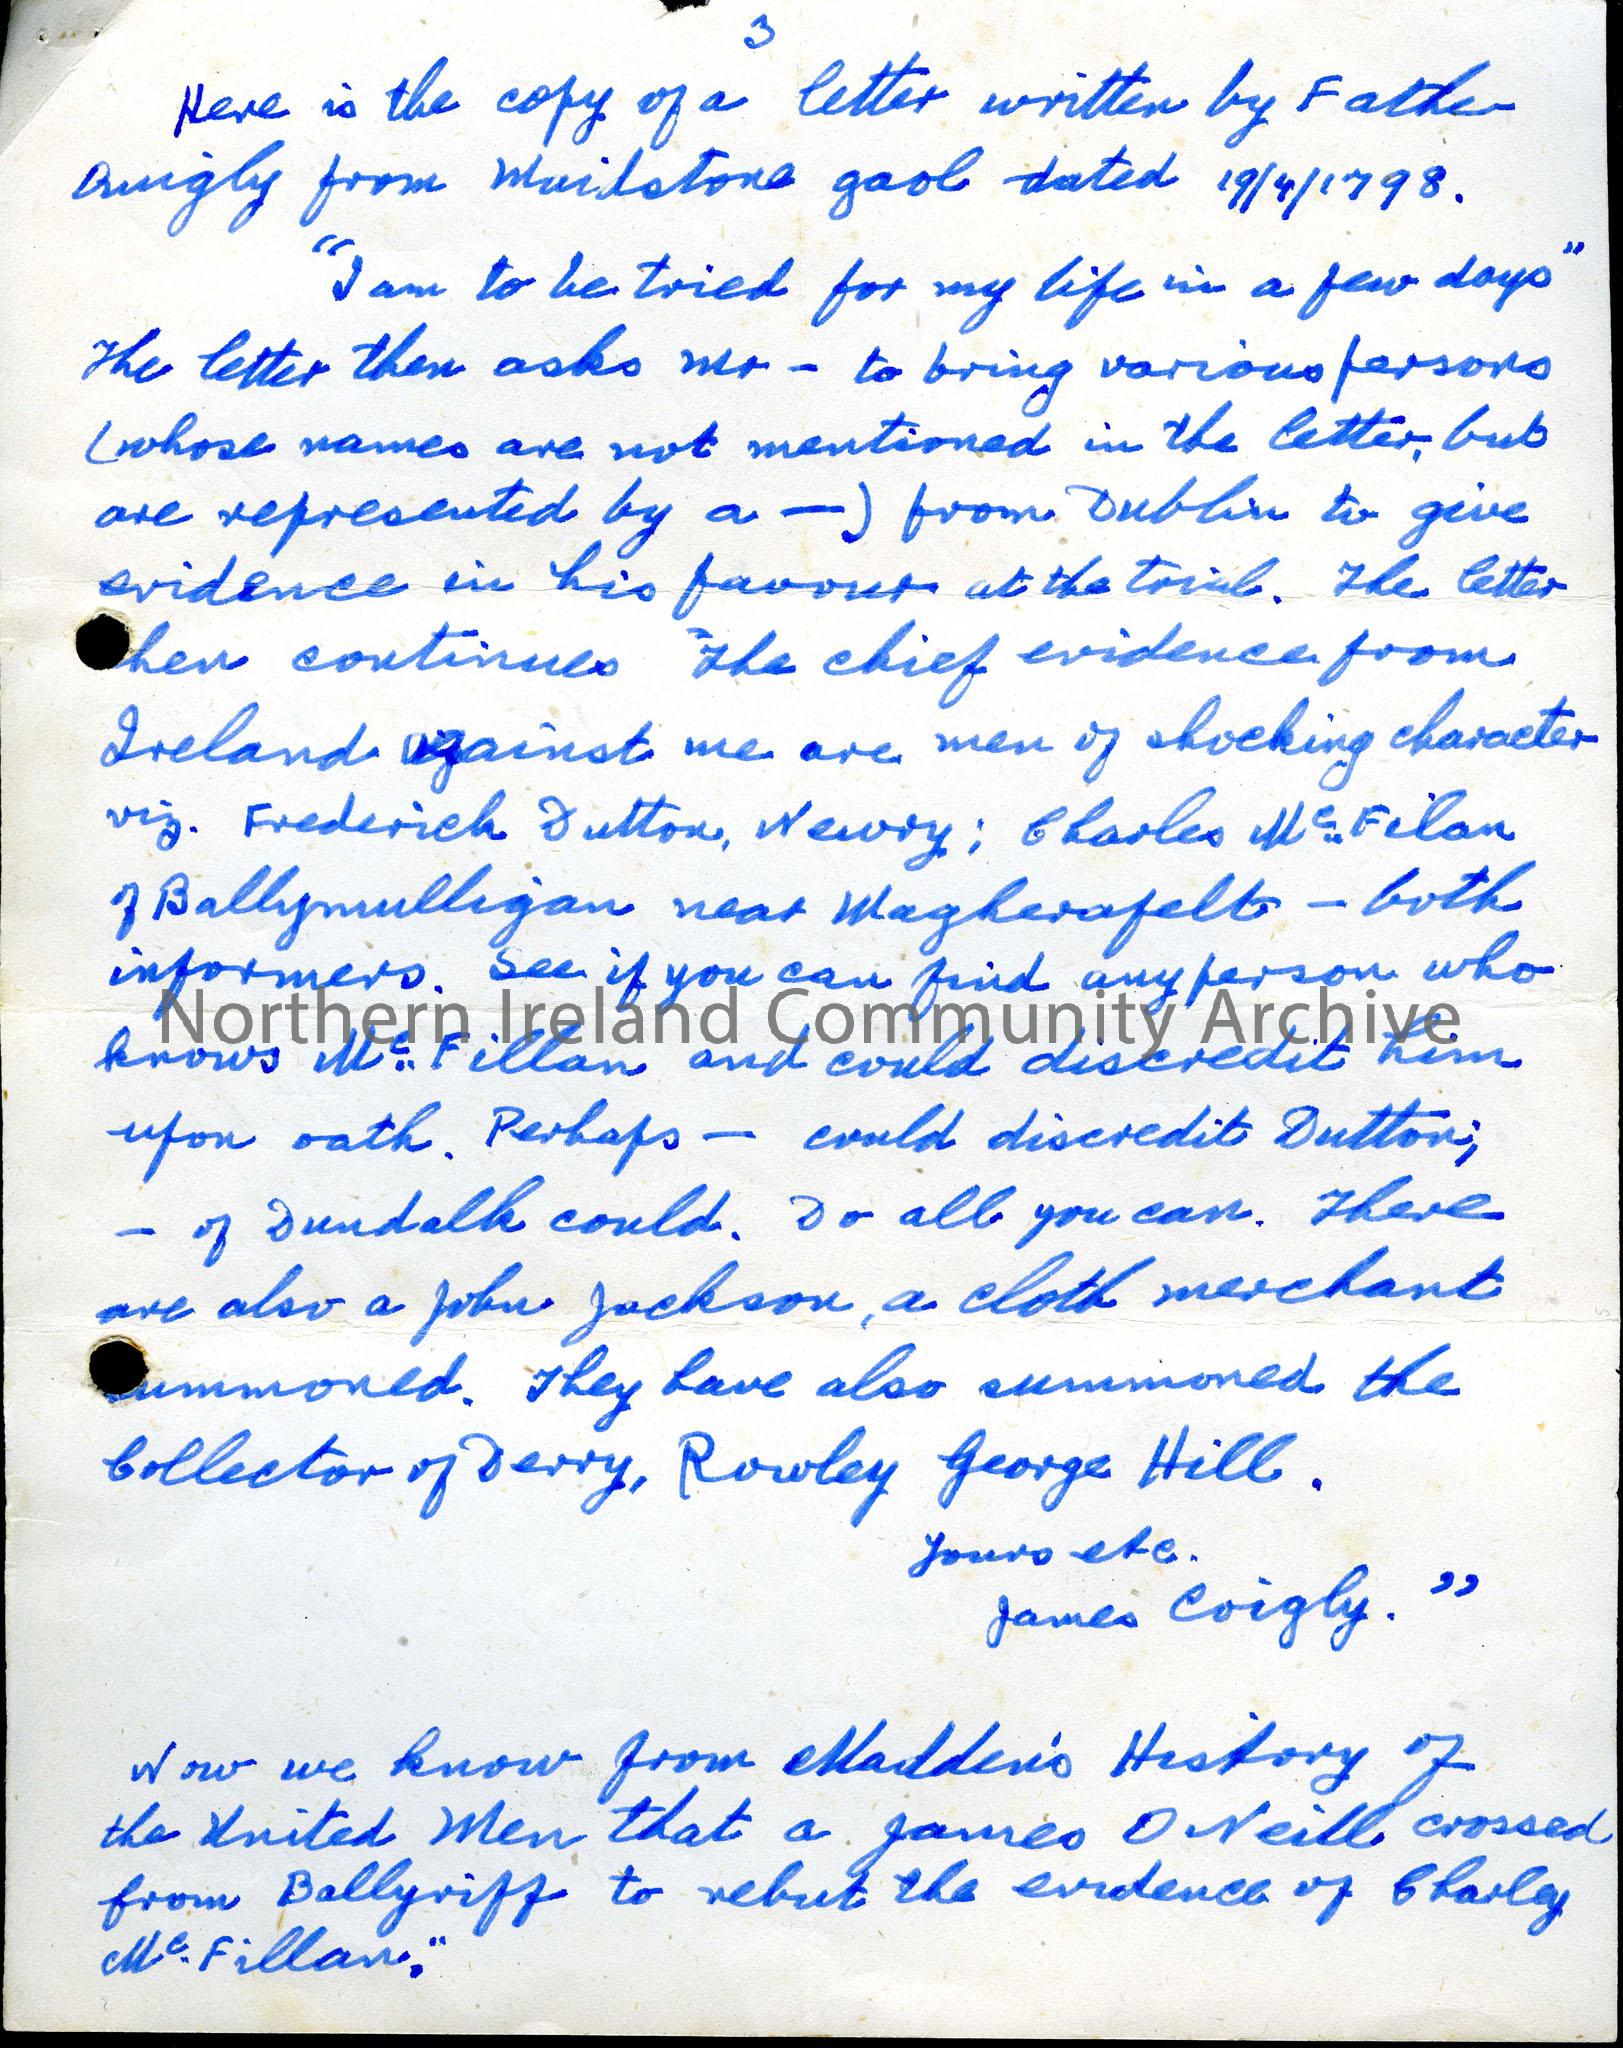 3
Here is the copy of a letter written by Father
Quigly from Maidstone gaol dated 19/4/1798.
"I am to be tried for my life in a few days"
The letter then asks Mr – to bring various persons
(whose names are not mentioned in the letter, but
are represented by a —) from Dublin to give
evidence in his favour at the trial. The letter
then continues "The chief evidence from
Ireland against me are men of shocking character
viz. Frederick Dutton, Newry; Charles Mc. Filan
of Ballymulligan near Magherafelt – both
informers. See if you can find any person who
Northern Ireland Community Archive
knows Mc. Fillan and could discredit him
upon oath. Perhaps — could discredit Dutton;
— of Dundalk could. Do all you can. There
are also a John Jackson, a cloth merchant
summoned. They have also summoned the
Collector of Derry, Rowley George Hill.
Yours etc.
James Coigly."
Now we know from Madden's History of
the United Men that a James O Neill crossed
from Ballyriff to rebut the evidence of Charley
Mc. Fillan."